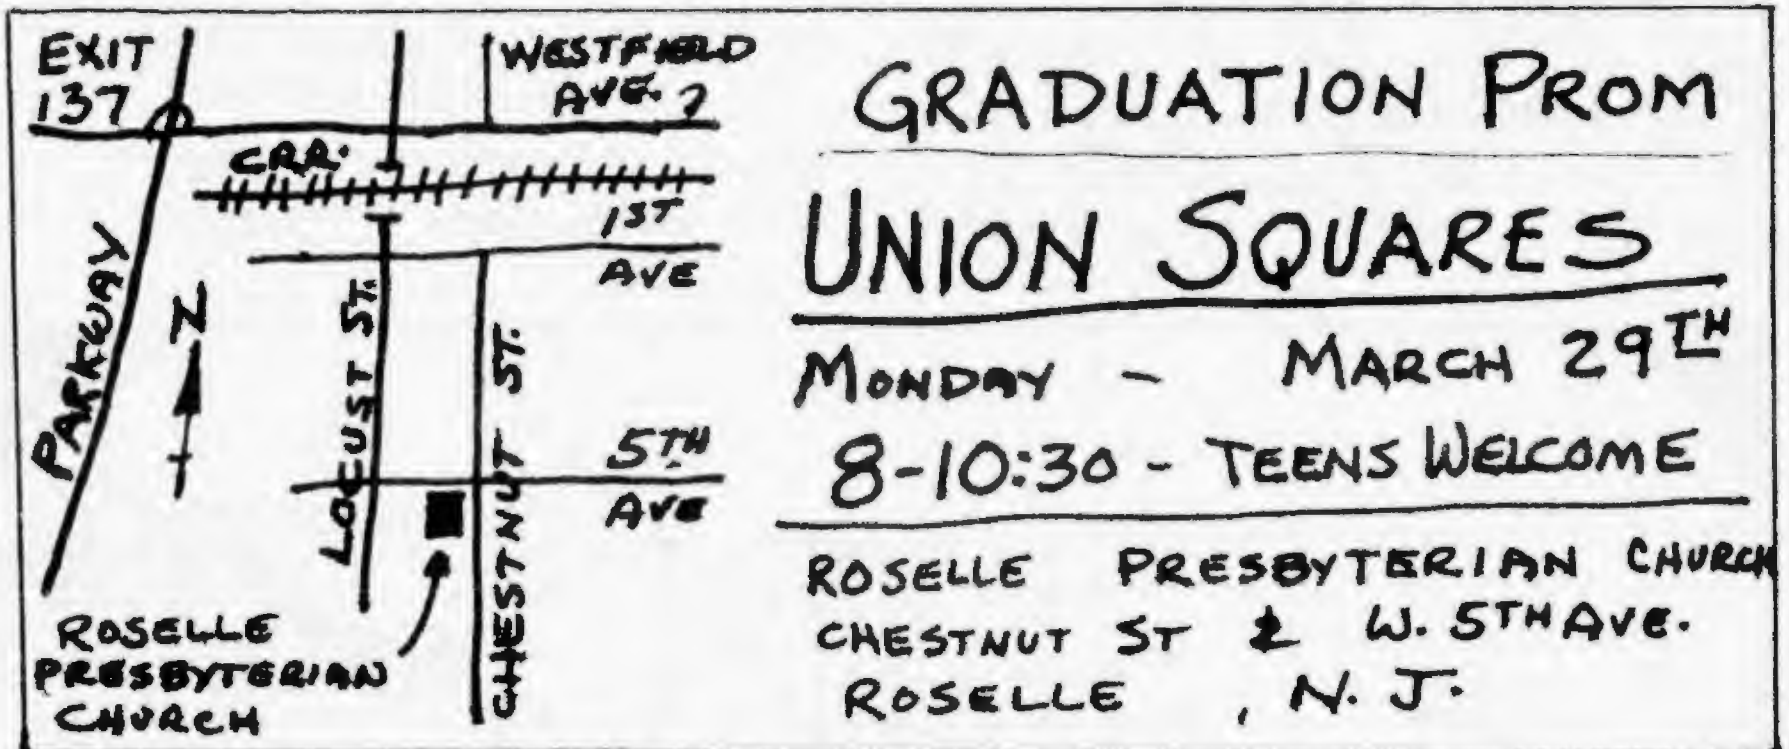 EXIT
137
WESTFIELD
AVE.
CRR.
1ST
AVE
PARKWAY
N
LOCUST ST.
CHESTNUT ST.
5TH
AVE
ROSELLE
PRESBYTERIAN
CHURCH
GRADUATION PROM
UNION SQUARES
MONDAY - MARCH 29TH
8-10:30 - TEENS WELCOME
ROSELLE PRESBYTERIAN CHURCH
CHESTNUT ST & W. 5TH AVE.
ROSELLE, N. J.